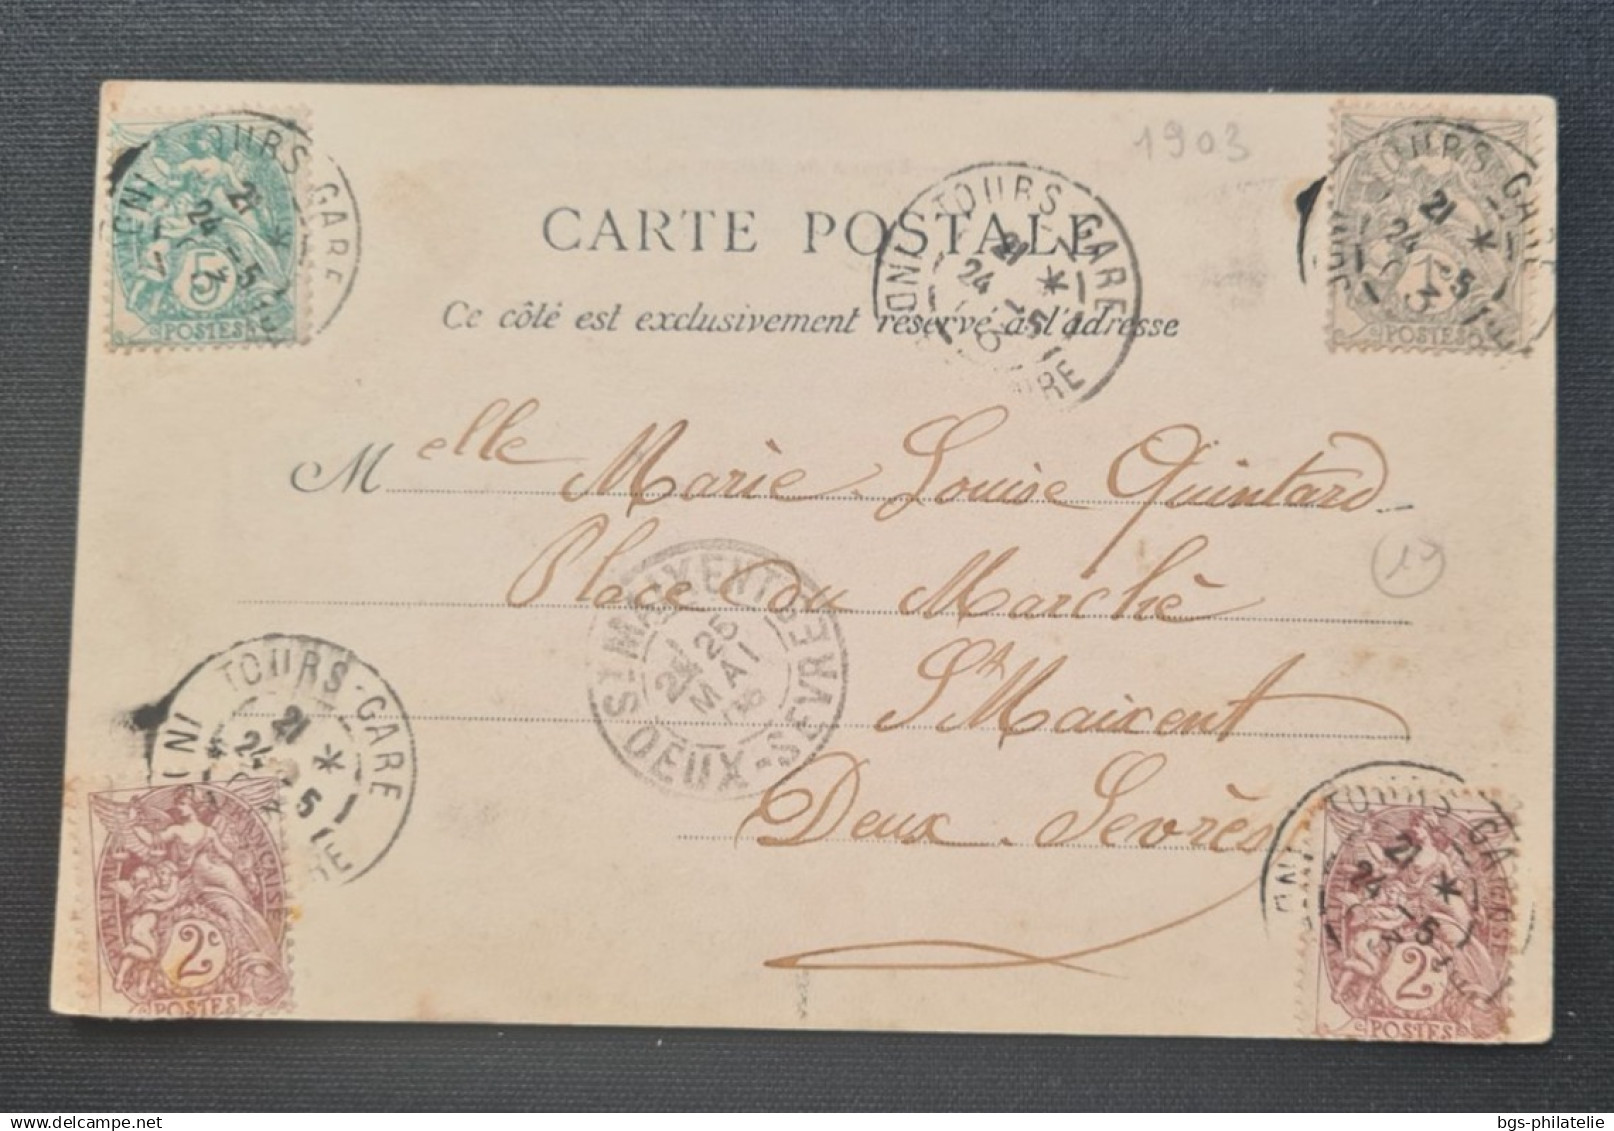 1903
TOURS-GARE
21
24 -5
5
POSTES
TOURS-GARE
21
24 -5
TOURS-GARE
21
24 -5
1
POSTES
CARTE POSTALE
Ce côté est exclusivement réservé à l'adresse
Melle Marie-Louise Quintard
Place du Marché
19
St Maixent
Deux-Sèvres
ST MAIXENT
25
MAI
DEUX-SEVRES
TOURS-GARE
21
24 -5
2c
POSTES
TOURS-GA
21
24 -5
2c
POSTES
bgs-philatelie